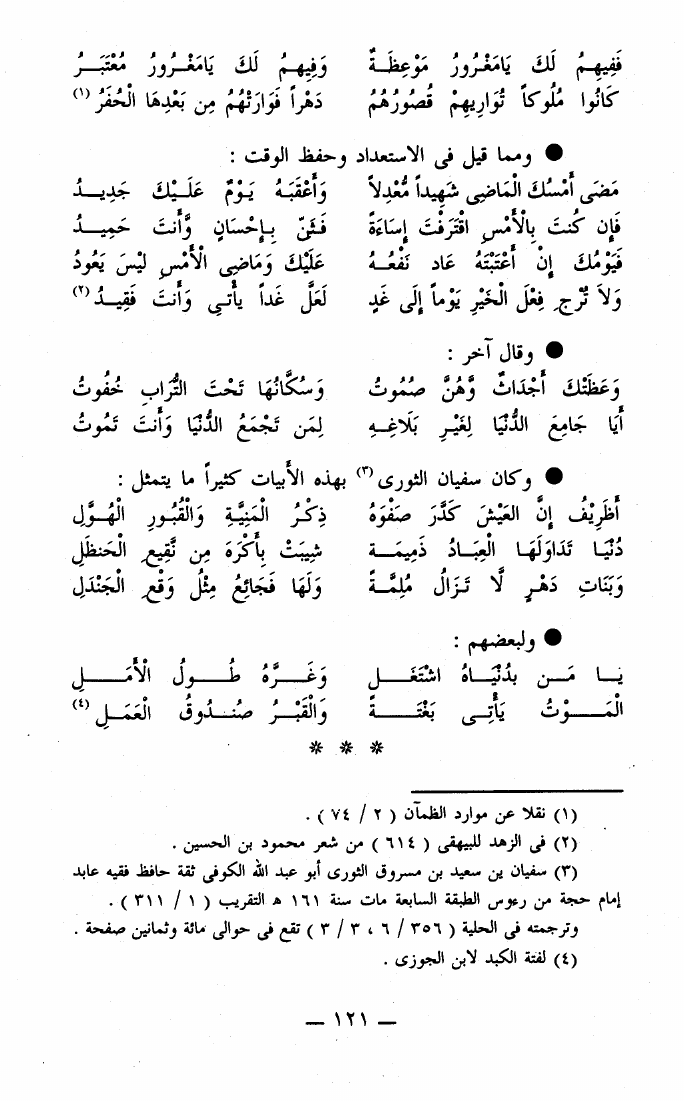 فَفِيهِمُ لَكَ يَامَغْرُورُ مَوْعِظَةٌ وَفِيهِمُ لَكَ يَامَغْرُورُ مُعْتَبَرُ
كَانُوا مُلُوكاً تُوَارِيهِمْ قُصُورُهُمُ دَهْراً فَوَارَتْهُمُ مِن بَعْدِهَا الْحُفَرُ (١)
● ومما قيل فى الاستعداد وحفظ الوقت :
مَضَى أَمْسُكَ الْمَاضِى شَهِيداً مُعْدِلاً وَأَعْقَبَهُ يَوْمٌ عَلَيْكَ جَدِيدُ
فَإِن كُنتَ بِالْأَمْسِ اقْتَرَفْتَ إِسَاءَةً فَثَنّ بِإِحْسَانٍ وَّأَنتَ حَمِيدُ
فَيَوْمُكَ إِنْ أَعْتَبْتَهُ عَاد نَفْعُهُ عَلَيْكَ وَمَاضِى الْأَمْسِ لَيْسَ يَعُودُ
وَلَا تُرْجِ فِعْلَ الْخَيْرِ يَوْماً إِلَى غَدٍ لَعَلَّ غَداً يأْتِى وَأَنتَ فَقِيدُ (٢)
● وقال آخر :
وَعَظَتْكَ أَجْدَاثٌ وَّهُنَّ صُمُوتُ وَسُكَّانُهَا تَحْتَ التُّرَابِ خُفُوتُ
أَيَا جَامِعَ الدُّنْيَا لِغَيْرِ بَلَاغِهِ لِمَن تَجْمَعُ الدُّنْيَا وَأَنتَ تَمُوتُ
● وكان سفيان الثورى (٣) بهذه الأبيات كثيراً ما يتمثل :
أَظَرِيفُ إِنَّ الْعَيْشَ كَدَّرَ صَفْوَهُ ذِكْرُ الْمَنِيَّةِ وَالْقُبُورِ الْهُوَّلِ
دُنْيَا تَدَاوَلَهَا الْعِبَادُ ذَمِيمَةً شِيبَتْ بِأَكْرَهَ مِن نَّقِيعِ الْحَنظَلِ
وَبَنَاتِ دَهْرٍ لَّا تَزَالُ مُلِمَّةً وَلَهَا فَجَائِعُ مِثْلُ وَقْعِ الْجَنْدَلِ
● ولبعضهم :
يَا مَن بِدُنْيَاهُ اشْتَغَلِ وَغَرَّهُ طُولُ الْأَمَلِ
الْمَوْتُ يَأْتِى بَغْتَةً وَالْقَبْرُ صُنْدُوقُ الْعَمَلِ (٤)
* * *
(١) نقلا عن موارد الظمآن ( ٢ / ٧٤ ) .
(٢) فى الزهد للبيهقى ( ٦١٤ ) من شعر محمود بن الحسين .
(٣) سفيان بن سعيد بن مسروق الثورى أبو عبد الله الكوفى ثقة حافظ فقيه عابد
إمام حجة من رءوس الطبقة السابعة مات سنة ١٦١ هـ التقريب ( ١ / ٣١١ ) .
وترجمته فى الحلية ( ٣٥٦ / ٦ ، ٣ / ٣ ) تقع فى حوالى مائة وثمانين صفحة .
(٤) لفتة الكبد لابن الجوزى .
— ١٢١ —